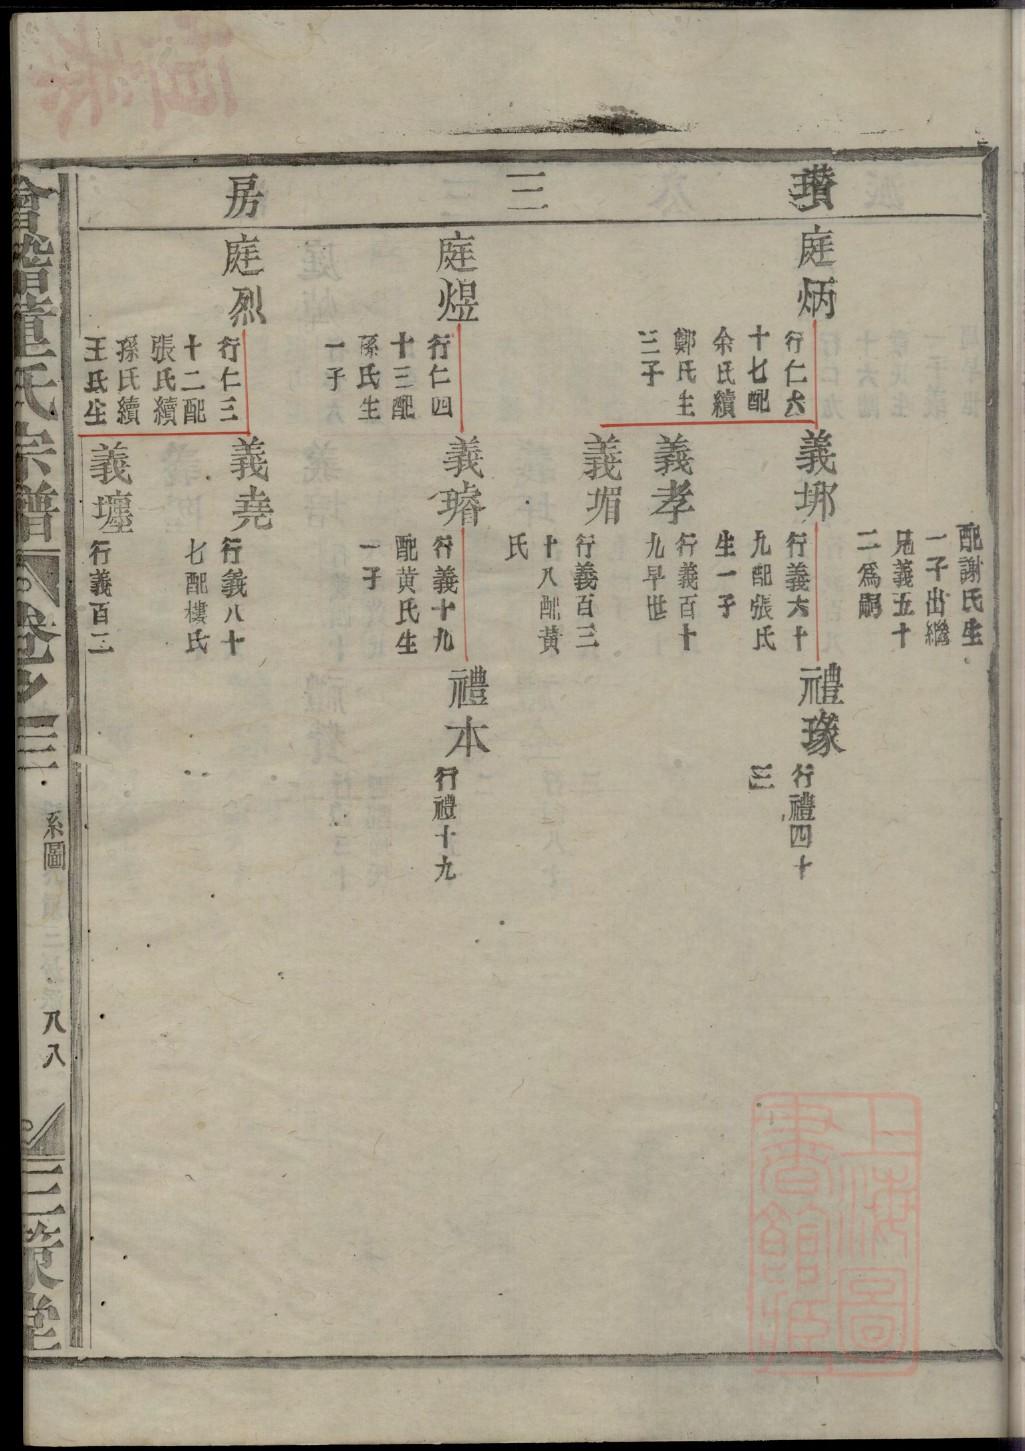 瓚三房
配謝氏生
一子出繼
兄義五十
二爲嗣
庭炳
行仁六
十七配
余氏續
鄭氏生
三子
義𡊢
行義六十
九配張氏
生一子
禮瑑
行禮四十
三
義孝
行義百十
九早世
義堳
行義百三
十八配黃
氏
庭煜
行仁四
十三配
孫氏生
一子
義璿
行義十九
配黃氏生
一子
禮本
行禮十九
庭烈
行仁三
十二配
張氏續
孫氏續
王氏生
義堯
行義八十
七配樓氏
義壥
行義百二
會稽童氏宗譜
卷之三
系圖
八八
三策堂
上海圖
書館藏